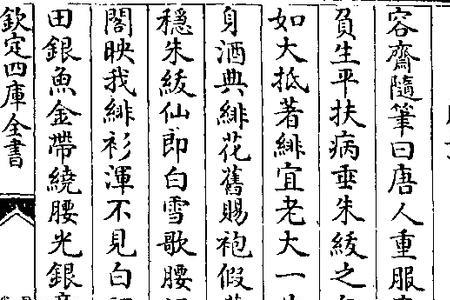 容齋隨筆曰唐人重服
負生平扶病垂朱紱之
如大抵著緋宜老大一
身酒典緋花舊賜袍假
穩朱紱仙郎白雪歌腰
閣映我緋衫渾不見白
田銀魚金帶繞腰光銀章
欽定四庫全書